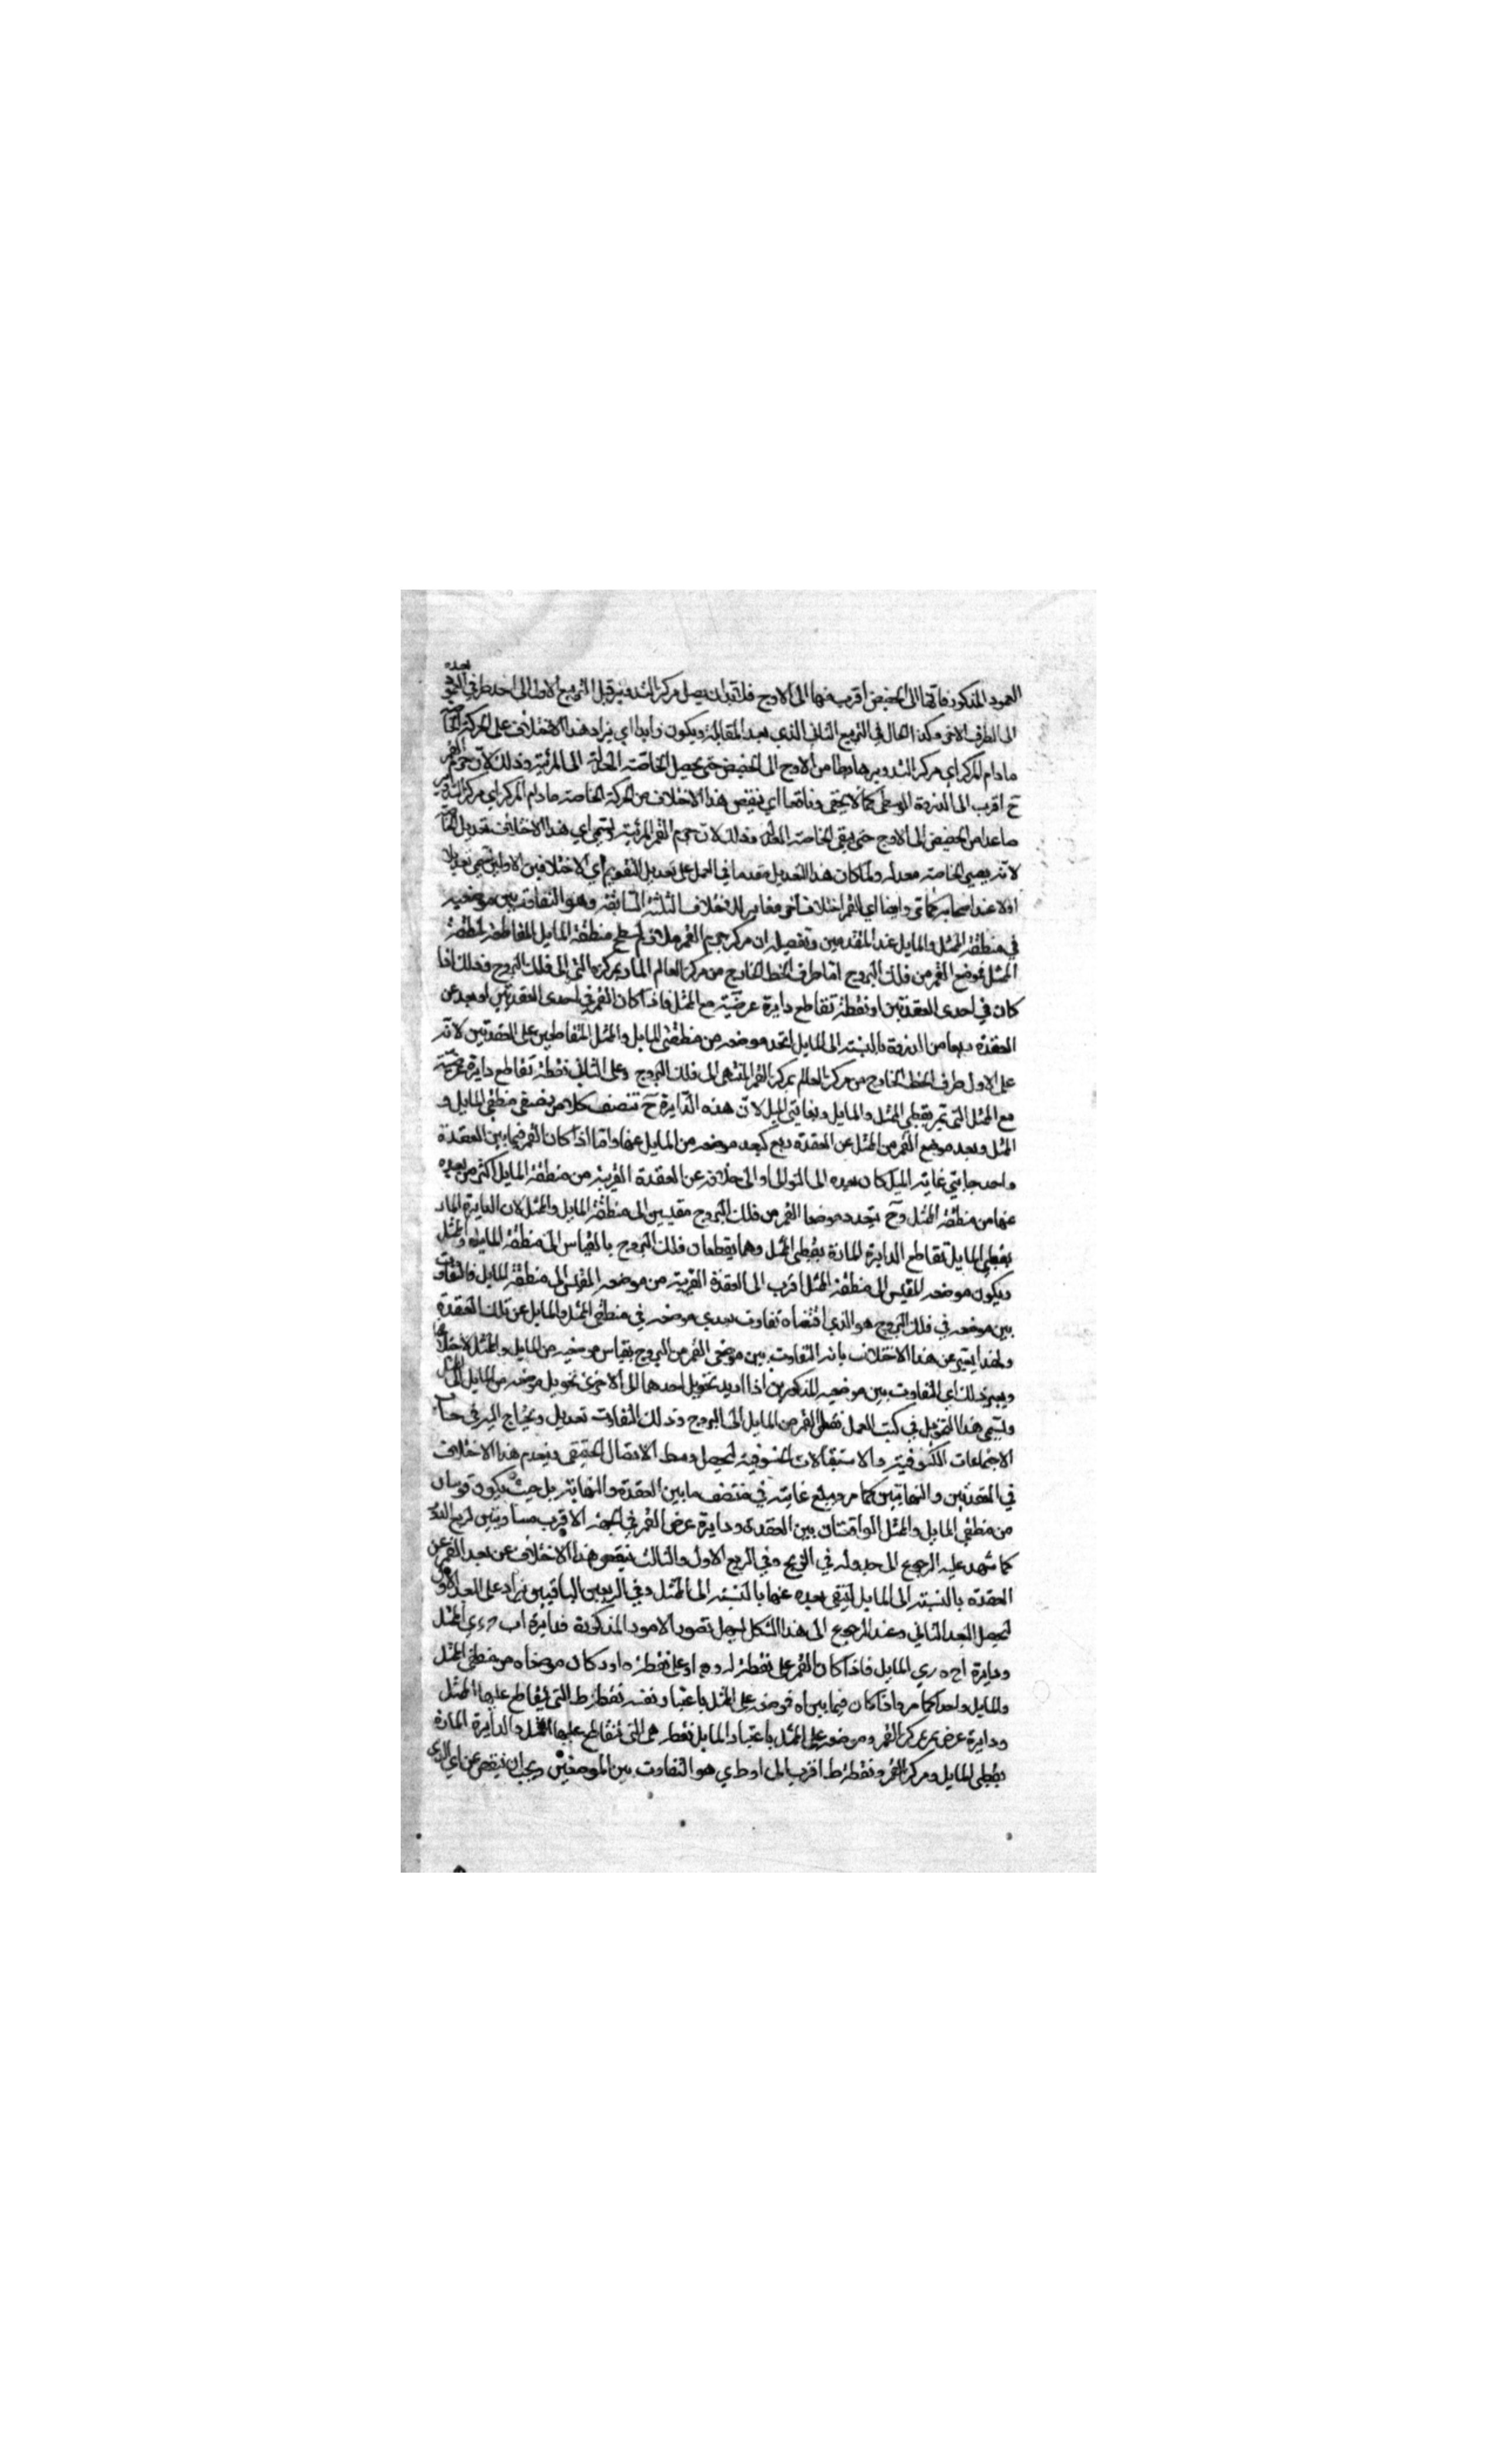 العمود المذكور فانها الى الحضيض اقرب منها الى الاوج فلا بد ان يصل مركز التدوير قبل التربيع الاول الى احد طرفي العمود وبعده
الى الطرف الاخر وكذا الحال في التربيع الثاني الذي بعد المقابلة ويكون زايدا اي يزاد هذا الاختلاف على الحركة الخاصة
ما دام المركز اي مركز التدوير هابطا من الاوج الى الحضيض حتى يحصل الخاصة المعدلة الى المرئية وذلك لان جرم القمر
ح اقرب الى الذروة الوسطى كما لا يخفى وناقصا اي ينقص هذا الاختلاف من الحركة الخاصة ما دام المركز اي مركز التدوير
صاعدا من الحضيض الى الاوج حتى يبقى الخاصة المعدلة وذلك لان جرم القمر المرئية ويسمى اي هذا الاختلاف تعديل الخاصة
لانه يصير الخاصة معدلة ولما كان هذا التعديل مقدما في العمل على تعديل التقويم اي الاختلافين الاولين سمي تعديلا
اولا عند اصحابه كما تى وايضا اي للقمر اختلاف اخر مغاير للاختلاف الثلثة السابقة وهو التفاوت بين موضعيه
في منطقة الممثل والمايل عند المتقدمين وتفصيله ان مركز جرم القمر ملازم لسطح منطقة المايل المقاطعة لمنطقة
الممثل فموضع القمر من فلك البروج اما طرف الخط الخارج من مركز العالم المار بمركزه المنتهي الى فلك البروج وذلك اذا
كان في احدى العقدتين او نقطة تقاطع دايرة عرضية مع الممثل فاذا كان القمر في احدى العقدتين او بعد عن
العقدة ربعا من الذروة بالنسبة الى المايل اتحد موضعه من منطقتي المايل والممثل المتقاطعين على العقدتين لانه
على الاول طرف الخط الخارج من مركز العالم بمركز القمر المنتهي الى فلك البروج وعلى الثاني نقطة تقاطع دايرة عرضية
مع الممثل التي تمر بقطبي الممثل والمايل وبغايتي الميل لان هذه الدايرة ح تنصف كلا من نصفي منطقتي المايل و
الممثل وبعد موضع القمر من الممثل عن العقدة ربع كبعد موضعه من المايل عنها واما اذا كان القمر فيما بين العقدة
واحد جانبي غاية الميل كان بعده الى التوالي او الى خلافه عن العقدة القريبة من منطقة المايل اكثر من بعده
عنها من منطقة الممثل وح يتعدد موضعا القمر من فلك البروج مقيسين الى منطقة المايل والممثل لان الدايرة المارة
بقطبي المايل تقاطع الدايرة المارة بقطبي الممثل وهما يقطعان فلك البروج بالقياس الى منطقة المايل والممثل
ويكون موضعه المقيس الى منطقة الممثل اقرب الى العقدة القريبة من موضعه المقيس الى منطقة المايل فالتفاوت
بين موضعه في فلك البروج هو الذي اقتضاه تفاوت بعدي موضعه في منطقتي الممثل والمايل عن تلك العقدة
ولهذا يعبر عن هذا الاختلاف بانه التفاوت بين موضعي القمر من البروج بقياس موضعيه من المايل والممثل لاختلافهما
ويعبر ذلك اي التفاوت بين موضعيه المذكورين اذا اريد تحويل احدهما الى الاخر في تحويل موضعه من المايل الى الممثل
ويسمى هذا التحويل في كتب العمل نقل القمر من المايل الى البروج وذلك التفاوت تعديل ويحتاج اليه في حساب
الاجتماعات الكسوفية والاستقبالات الخسوفية لتحصيل وسط الاتصال الحقيقي وينعدم هذا الاختلاف
في العقدتين والنهايتين كما مر ويبلغ غايته في منتصف ما بين العقدة والنهاية بل حيث يكون قوسان
من منطقتي المايل والممثل الواقعتان بين العقدة ودايرة عرض القمر في الجهة الاقرب مساويتين لربع الدور
كما شهد عليه الرجوع الى جدوله في الزيج وفي الربع الاول والثالث ينقص هذا الاختلاف عن بعد القمر عن
العقدة بالنسبة الى المايل ليبقى بعده عنها بالنسبة الى الممثل وفي الربعين الباقيين يزاد على البعد الاول
ليحصل البعد الثاني وعند الرجوع الى هذا الشكل يسهل تصور الامور المذكورة فدايرة اب ي الممثل
ودايرة اح ه ري المايل فاذا كان القمر على نقطة او على نقطة ه او د كان موضعاه من منطقتي الممثل
والمايل واحدا كما مر واذا كان فيما بين اه فموضعه على الممثل باعتبار نفسه نقطة ط التي يتقاطع عليها الممثل
ودايرة عرض تمر بمركز القمر وموضعه على الممثل باعتبار المايل نقطة هي التي تتقاطع عليها الممثل والدايرة المارة
بقطبي المايل ومركز القمر ونقطة ط اقرب الى ا وط ي هو التفاوت بين الموضعين ويجب ان ينقص عن اي الذي